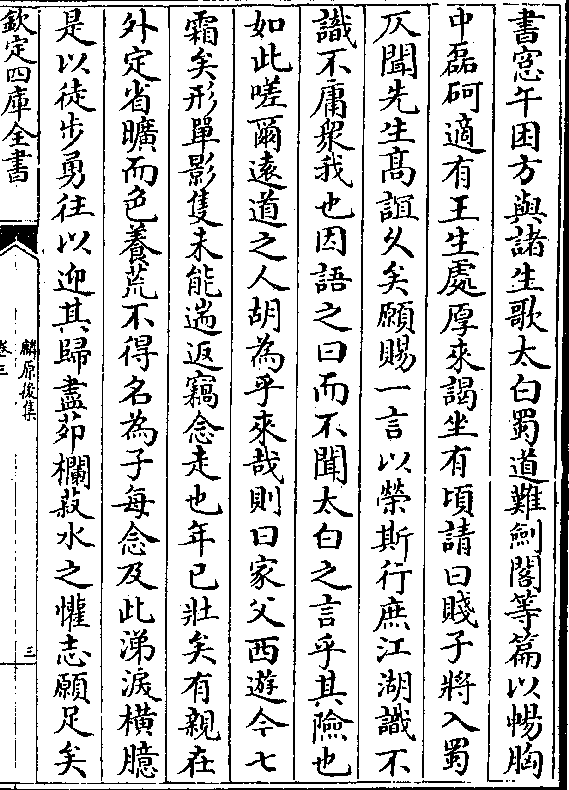 書窓午困方與諸生歌太白蜀道難劍閣等篇以暢胸
中磊砢適有王生處厚來謁坐有頃請曰賤子將入蜀
仄聞先生高誼久矣願賜一言以榮斯行庶江湖識不
識不庸衆我也因語之曰而不聞太白之言乎其險也
如此嗟爾遠道之人胡為乎來哉則曰家父西遊今七
霜矣形單影隻未能遄返竊念走也年已壯矣有親在
外定省曠而色養荒不得名為子每念及此涕淚橫臆
是以徒步勇往以迎其歸盡茆欄菽水之懽志願足矣
欽定四庫全書
麟原後集
卷三
三